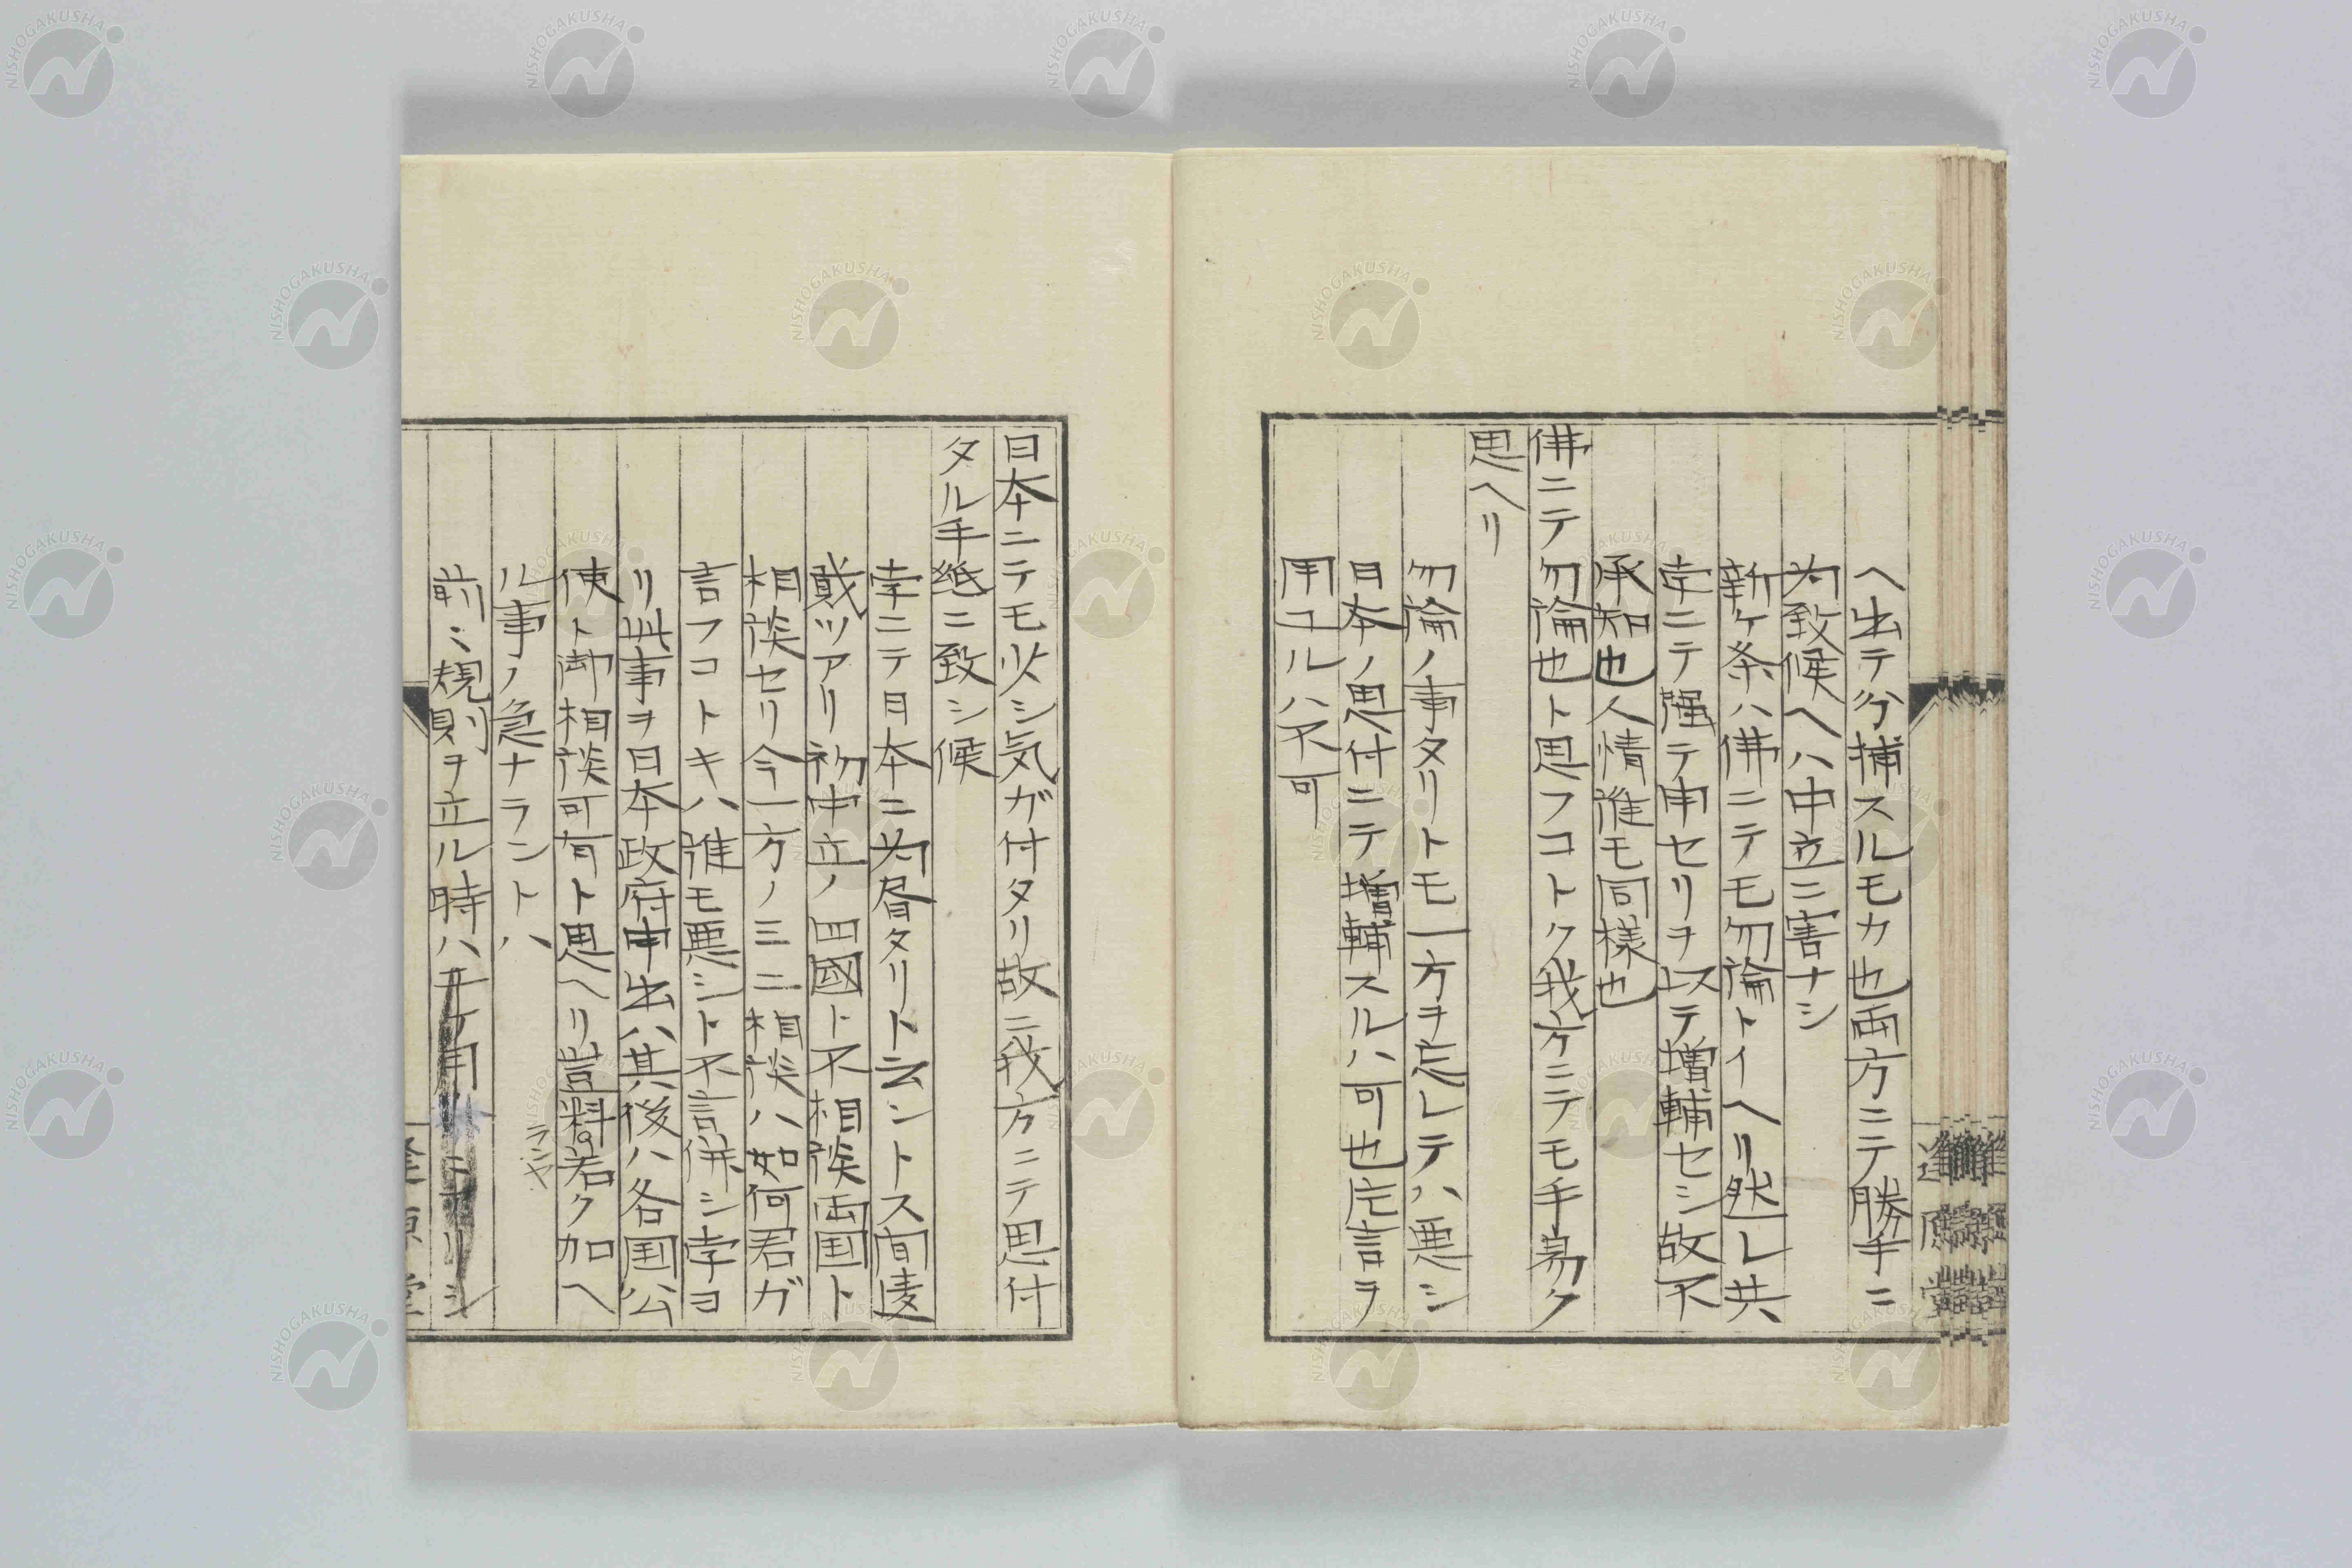 へ出テ分捕スルモカ也両方ニテ勝手ニ
為致候ヘハ中立ニ害ナシ
新ケ条ハ佛ニテモ勿論トイヘリ然レ共
孛ニテ強テ申セリヲ以テ増輔セシ故不
承知也人情誰モ同様也
佛ニテ勿論也ト思フコトク我方ニテモ手易ク
思ヘリ
勿論ノ事タリトモ一方ヲ忘レテハ悪シ
日本ノ思付ニテ増輔スルハ可也片言ヲ
用ユルハ不可
日本ニテモ少シ気ガ付タリ故ニ我方ニテ思付
タル手紙ニ致シ候
孛ニテ日本ニ為屑タリト云ントス有遠
戝ツアリ初中立ノ四國ト不相談両国ト
相談セリ今一方ノ三ニ相談ハ如何君ガ
言フコトキハ誰モ悪シト不言併シ孛ヨ
リ此事ヲ日本政府申出ハ其後ハ各国公
使ト御相談可有ト思ヘリ豈料若ク加ヘ
ラニヤ
ル事ノ急ナラントハ
前ニ規則ヲ立ル時ハ
進原堂
NISHOGAKUSHA